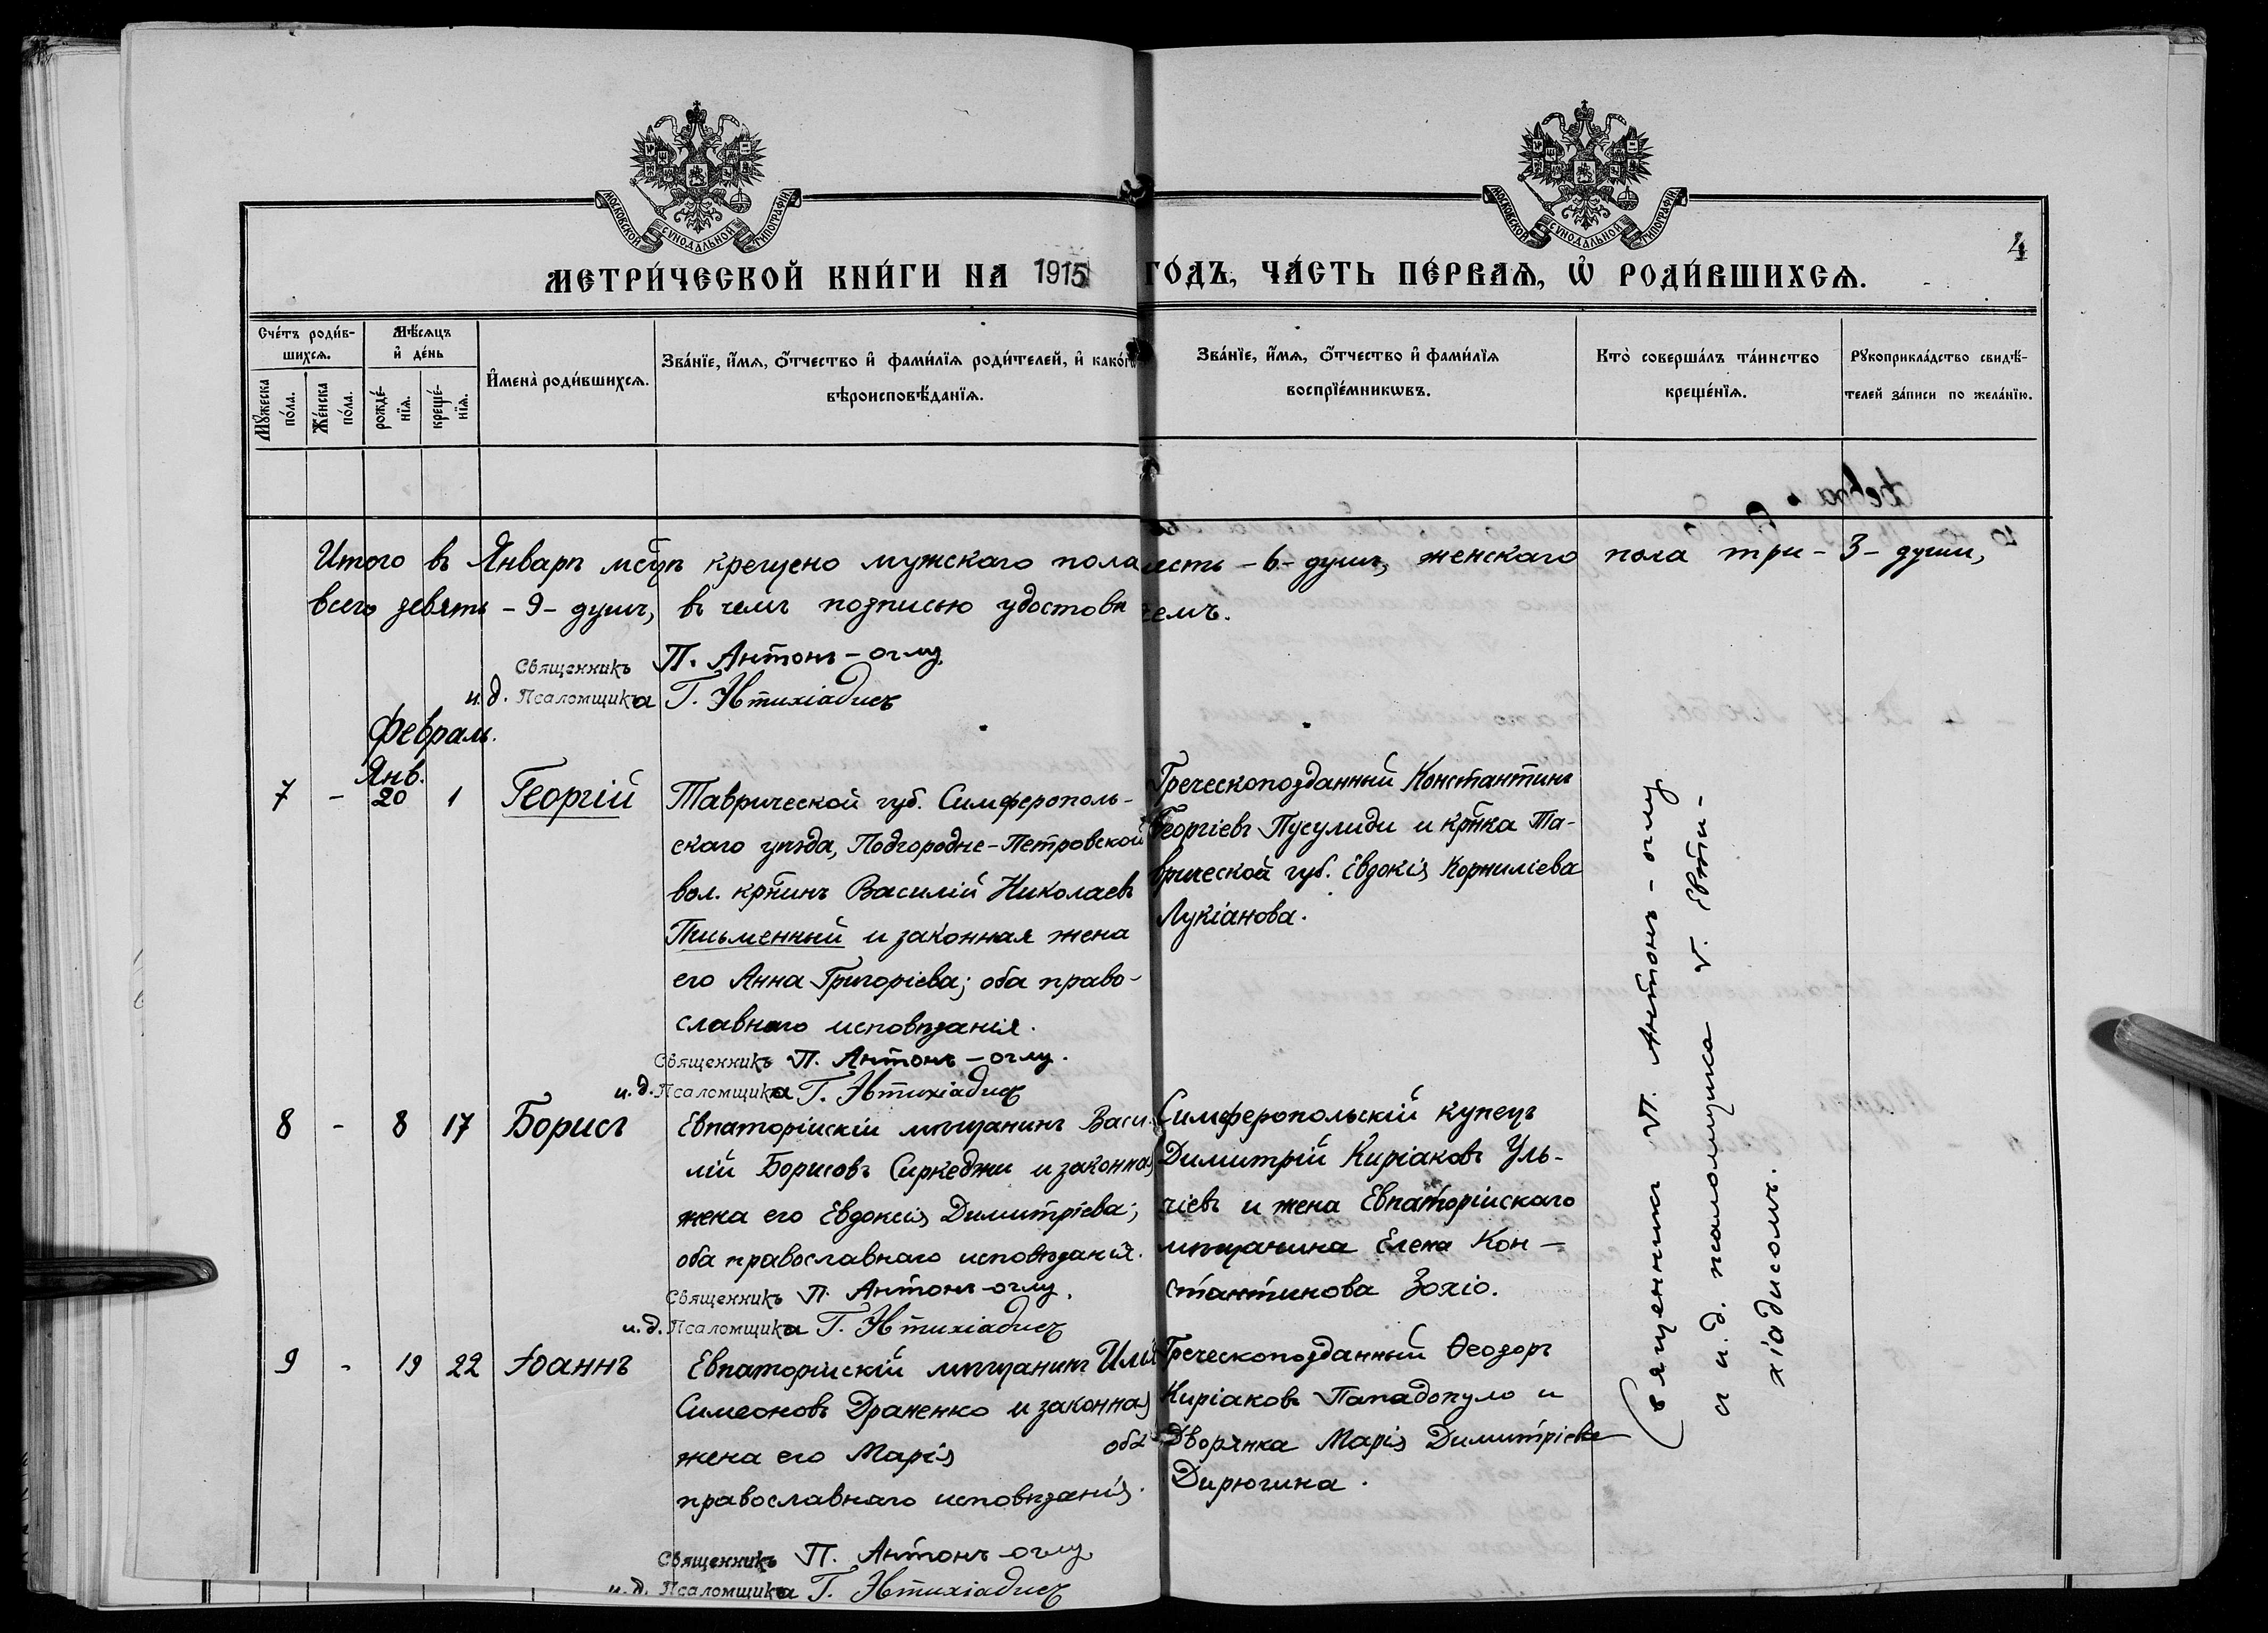 МОСКОВСКОЙ СѴНОДАЛЬНОЙ ТИПОГРАФІИ
МОСКОВСКОЙ СѴНОДАЛЬНОЙ ТИПОГРАФІИ
4
МЕТРИ́ЧЕСКОЙ КНИ́ГИ НА 1915 ГО́ДЪ, ЧА́СТЬ ПЕ́РВАѦ, Ѡ҆ РОДИ́ВШИХСѦ.
Сче́тъ роди́в-
шихсѧ.
Мѣ́сѧцъ
и҆ де́нь
И҆мена̀ роди́вшихсѧ.
Зва́нїе, и҆́мѧ, ѻ҆́тчество и҆ фами́лїѧ роди́телей, и҆ како́гѡ
вѣроисповѣ́данїѧ.
Зва́нїе, и҆́мѧ, ѻ҆́тчество и҆ фами́лїѧ
воспрїе́мникѡвъ.
Кто̀ соверша́лъ та́инство
креще́нїѧ.
Рꙋкоприкла́дство свидѣ́-
телей за́писи по жела́нїю.
Мꙋ́жеска
по́ла.
Же́нска
по́ла.
рожде́-
нїѧ.
креще́-
нїѧ.
Итого въ Январѣ мсцѣ крещено мужскаго пола шесть - 6 - душъ, женскаго пола три - 3 - души,
всего девять - 9 - душъ, въ чемъ подписью удостовѣряемъ.
Священникъ П. Антонъ-оглу
и.д. Псаломщика Г. Эвтихіадисъ
Февраль.
Янв.
7 - 20 1 Георгій
Таврической губ. Симферополь-
скаго уѣзда, Подгородне-Петровской
вол. кр̃нинъ Василій Николаевъ
Письменный и законная жена
его Анна Григоріева; оба право-
славнаго исповѣданія.
Священникъ П. Антонъ-оглу.
и.д. Псаломщика Г. Эвтихіадисъ
Греческоподданный Константинъ
Георгіевъ Пусулиди и кр̃нка Та-
врической губ. Евдокія Корниліева
Лукіанова.
8 - 8 17 Борисъ
Евпаторійскій мѣщанинъ Васи-
лій Борисовъ Сиркеджи и законная
жена его Евдоксія Димитріева;
оба православнаго исповѣданія.
Священникъ П. Антонъ-оглу.
и.д. Псаломщика Г. Эвтихіадисъ
Симферопольскій купецъ
Димитрій Киріаковъ Уль-
чіевъ и жена Евпаторійскаго
мѣщанина Елена Кон-
стантинова Зохіо.
9 - 19 22 Іоаннъ
Евпаторійскій мѣщанинъ Илія
Симеоновъ Драненко и законная
жена его Марія оба
православнаго исповѣданія.
Священникъ П. Антонъ-оглу
и.д. Псаломщика Г. Эвтихіадисъ
Греческоподданный Ѳеодоръ
Киріаковъ Пападопуло и
дворянка Марія Димитріева
Дирюгина.
Священникъ П. Антонъ-оглу
съ и.д. псаломщика Г. Евти-
хіадисомъ.